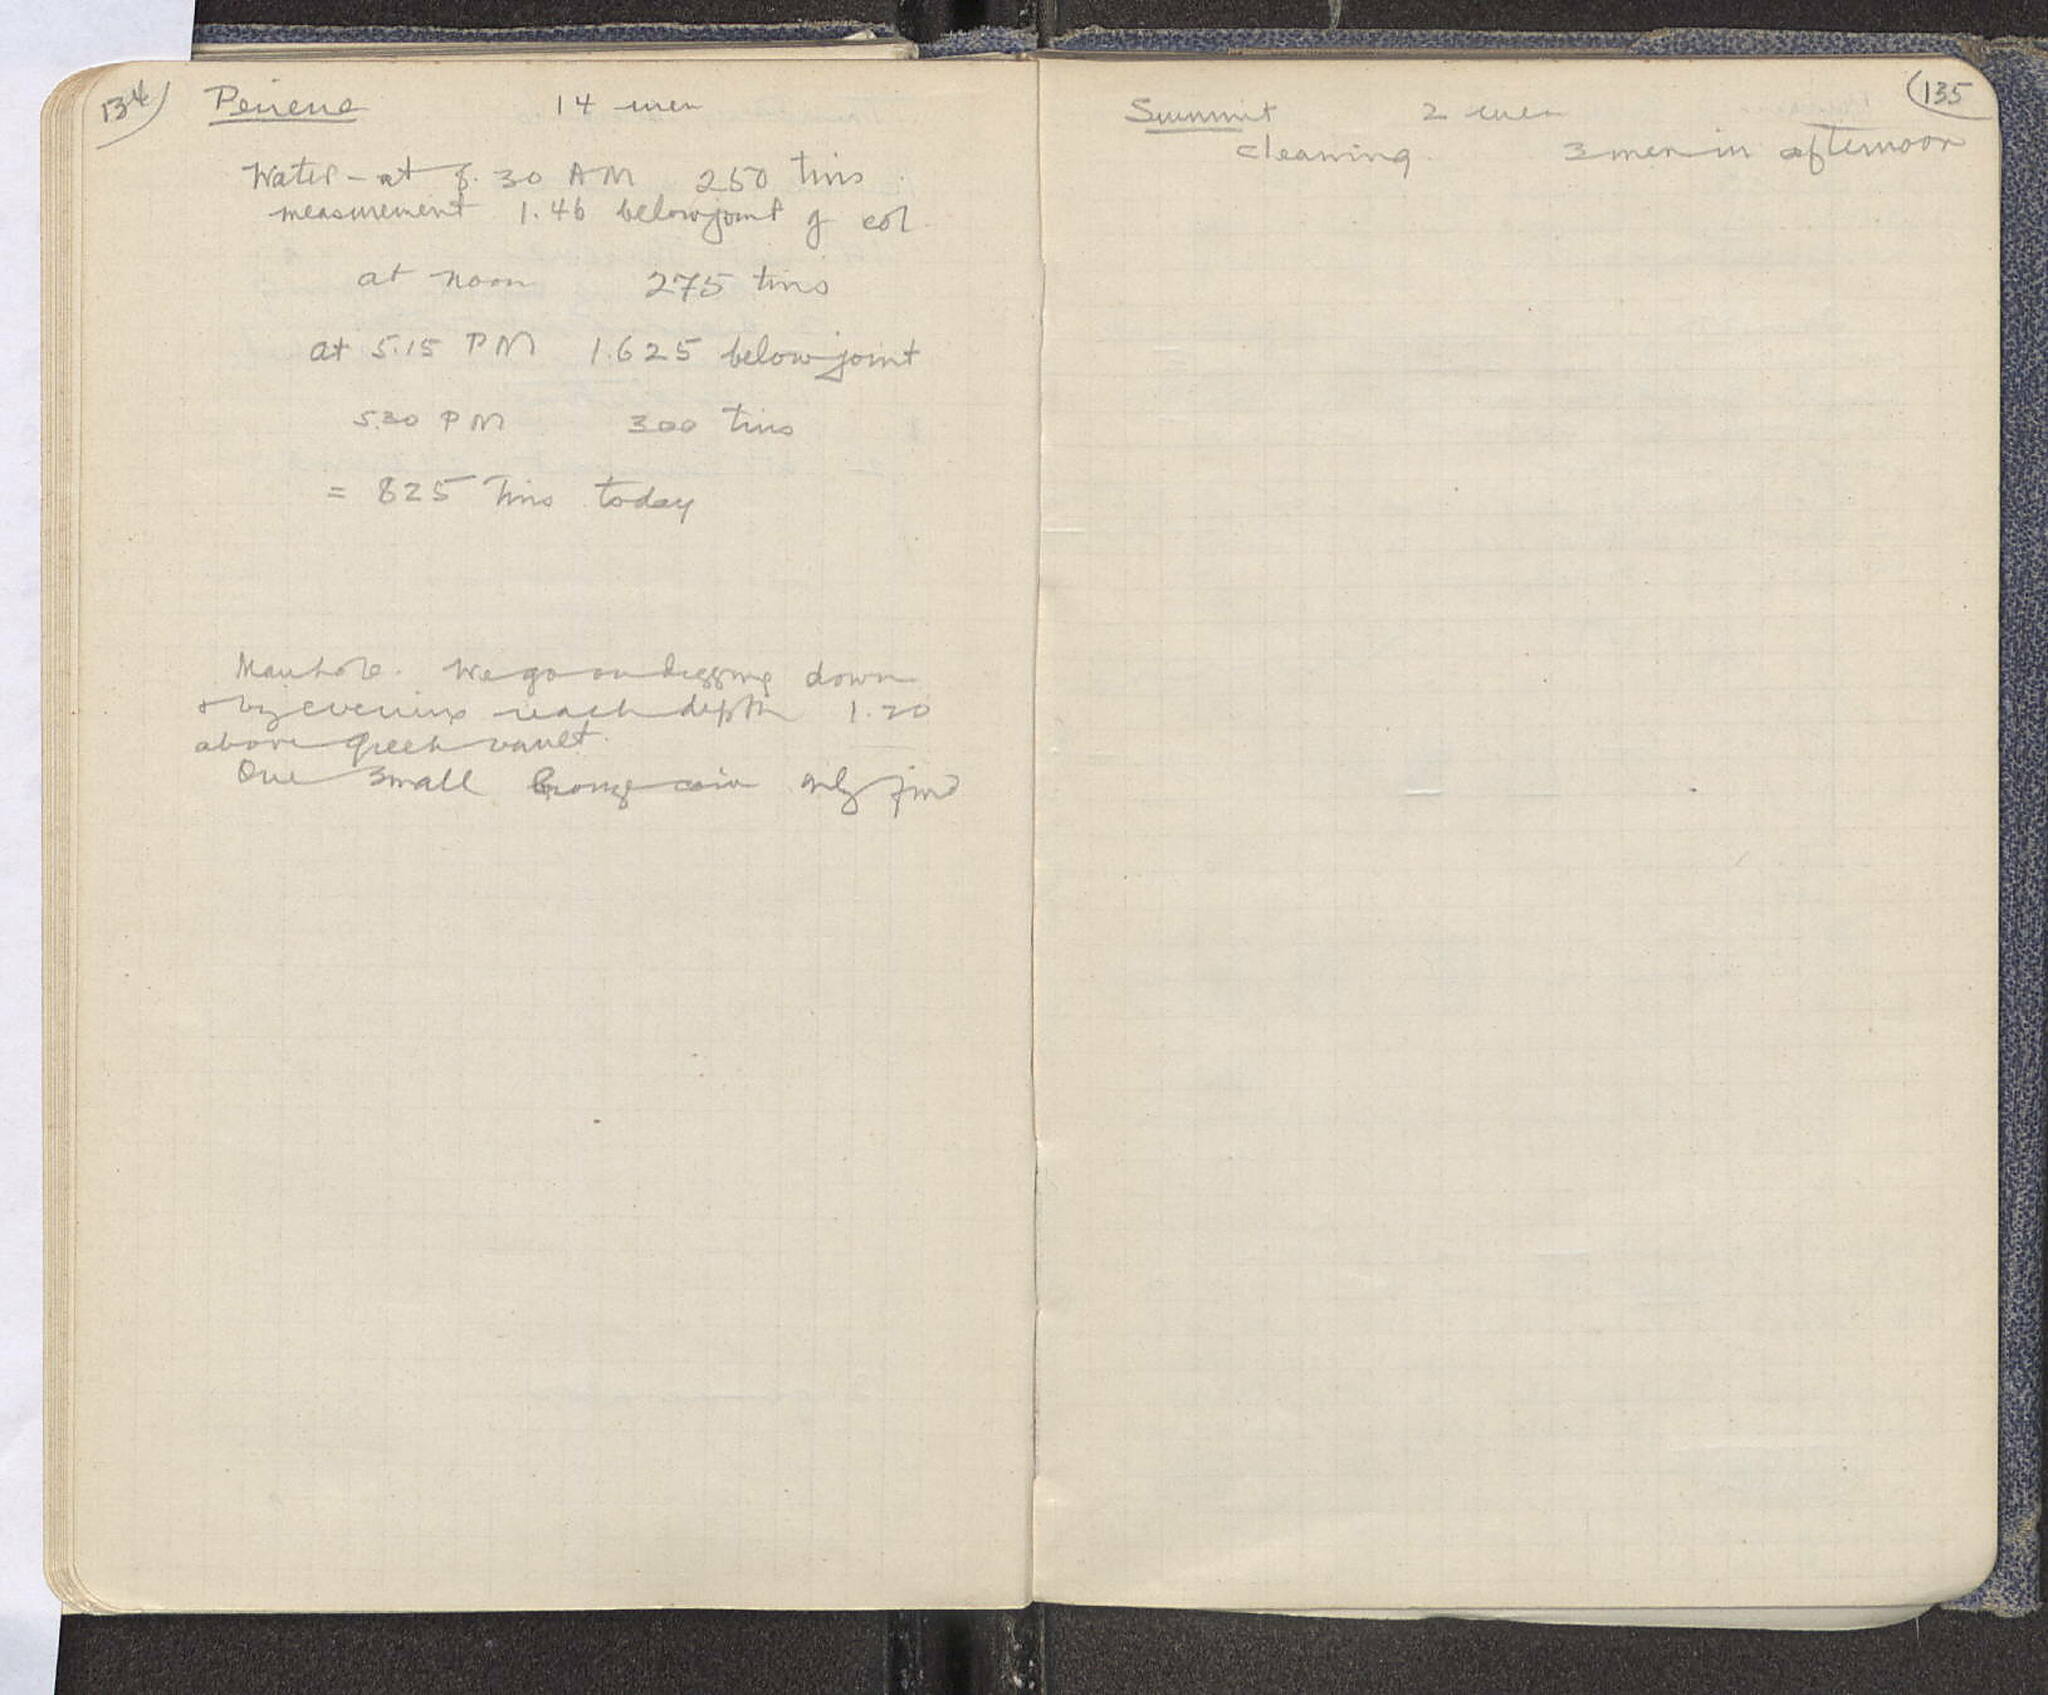 134
Peirene 14 men
Water - at 8.30 AM 250 tins
measurement 1.46 below joint of col.
at noon 275 tins
at 5.15 PM 1.625 below joint
5.30 PM 300 tins
= 825 Tins today
Manhole. We go on digging down
& by evening reach depth 1.20
above Greek vault.
One small bronze coin only find
135
Summit 2 men
cleaning 3 men in afternoon